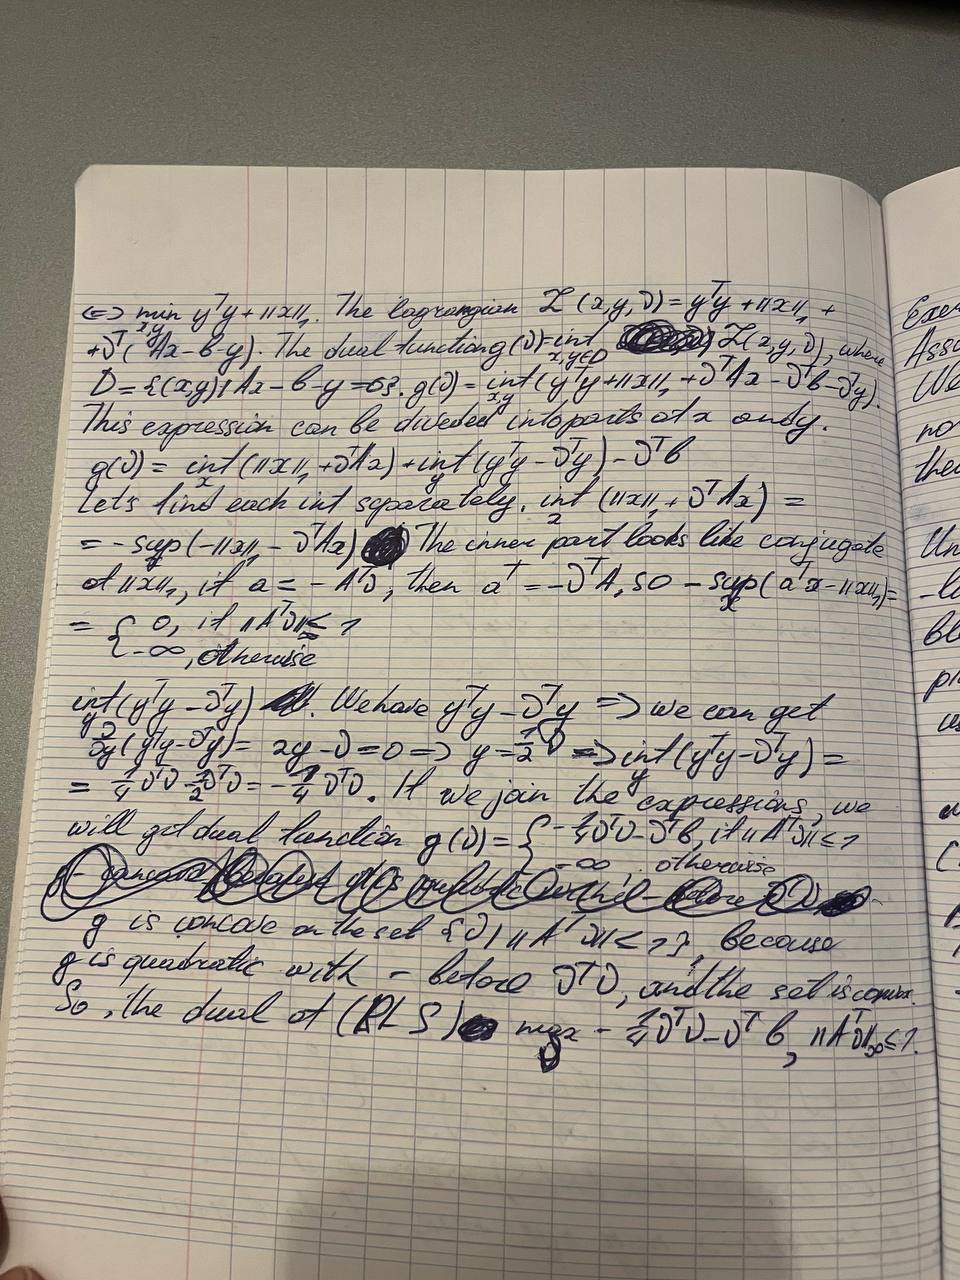 <=> min x,y yᵀy + ||x||₁. The lagrangian L(x,y,ν) = yᵀy + ||x||₁ +
+νᵀ(Ax-b-y). The dual function g(ν)=inf x,y∈D L(x,y,ν), where
D={(x,y)|Ax-b-y=0}. g(ν)= inf x,y (yᵀy+||x||₁+νᵀAx-νᵀb-νᵀy).
This expression can be divided into parts of x and y.
g(ν)= inf x (||x||₁+νᵀAx)+inf y (yᵀy-νᵀy)-νᵀb
Let's find each inf separately. inf x (||x||₁+νᵀAx) =
= -sup(-||x||₁ - νᵀAx) The inner part looks like conjugate
of ||x||₁, if a = -Aᵀν, then aᵀ=-νᵀA, so -sup x (aᵀx-||x||₁)=
= { 0, if ||Aᵀν||≤1
{ -∞, otherwise
inf y (yᵀy-νᵀy). We have yᵀy-νᵀy => we can get
∂/∂y(yᵀy-νᵀy)= 2y-ν=0 => y=1/2 ν => inf y (yᵀy-νᵀy)=
= 1/4 νᵀν - 1/2 νᵀν = -1/4 νᵀν. If we join the expressions, we
will get dual function g(ν)= { -1/4 νᵀν-νᵀb, if ||Aᵀν||≤1
-∞ otherwise
g is concave on the set {ν| ||Aᵀν||≤1}, because
g is quadratic with - before νᵀν, and the set is convex.
So, the dual of (RLS) max ν -1/4 νᵀν-νᵀb, ||Aᵀν||∞≤1.
Exer
Ass
We
no
the
Un
-l
ble
pr
us